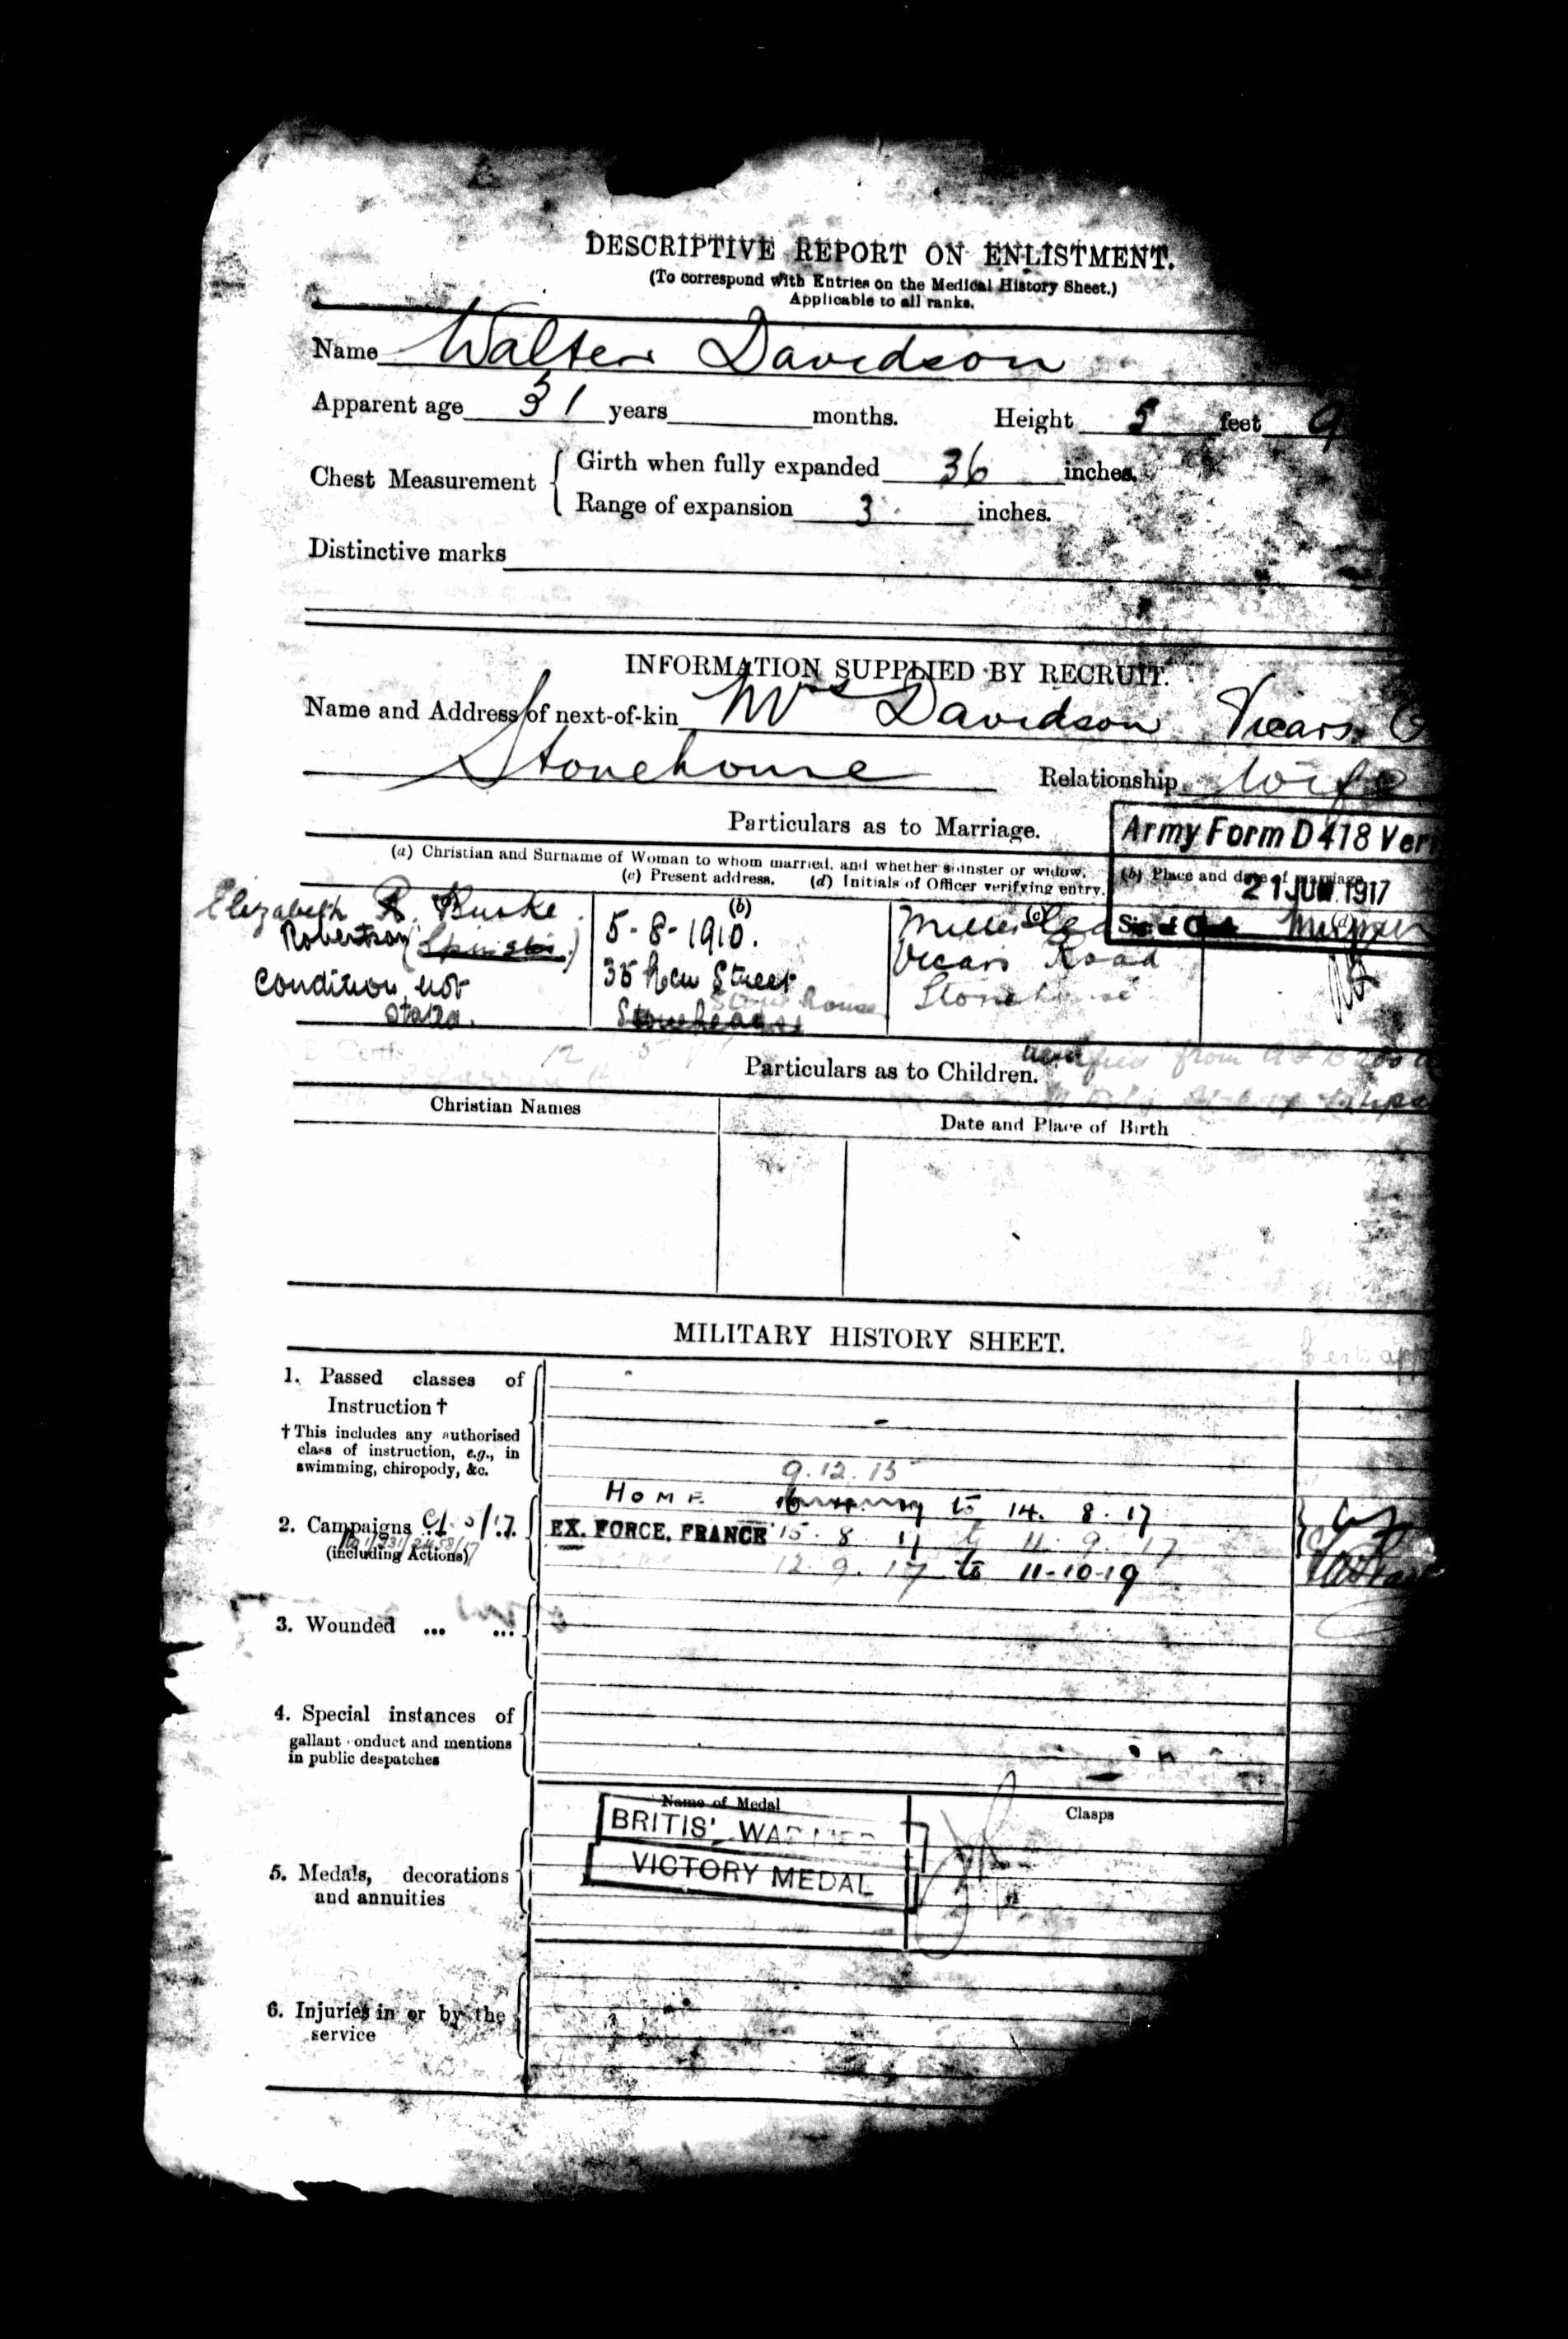 DESCRIPTIVE REPORT ON ENLISTMENT.
(To correspond with Entries on the Medical History Sheet.)
Applicable to all ranks.
Name Walter Davidson
Apparent age 31 years months. Height 5 feet 9
Chest Measurement { Girth when fully expanded 36 inches.
Range of expansion 3 inches.
Distinctive marks
INFORMATION SUPPLIED BY RECRUIT.
Name and Address of next-of-kin Mrs Davidson Vicars
Stonehouse Relationship Wife
Particulars as to Marriage.
Army Form D 418 Veri
(a) Christian and Surname of Woman to whom married, and whether spinster or widow. (b) Place and date of marriage
(c) Present address. (d) Initials of Officer verifying entry.
21 JUN 1917
Elizabeth R. Burke (b) (c) (d)
Robertson (Spinster) 5-8-1910.
Vicars Road
Condition not 35 New Street Stonehouse
stated. Stonehouse
Particulars as to Children. from
Christian Names Date and Place of Birth
MILITARY HISTORY SHEET.
1. Passed classes of
Instruction †
† This includes any authorised
class of instruction, e.g., in
swimming, chiropody, &c.
9.12.15
HOME to 14. 8. 17
2. Campaigns
EX. FORCE, FRANCE 15. 8. 17 to 11. 9. 17
(including Actions)
12. 9. 17 to 11-10-19
3. Wounded ... ...
4. Special instances of
gallant conduct and mentions
in public despatches
Name of Medal Clasps
BRITIS' WAR MED
VICTORY MEDAL
5. Medals, decorations
and annuities
6. Injuries in or by the
service